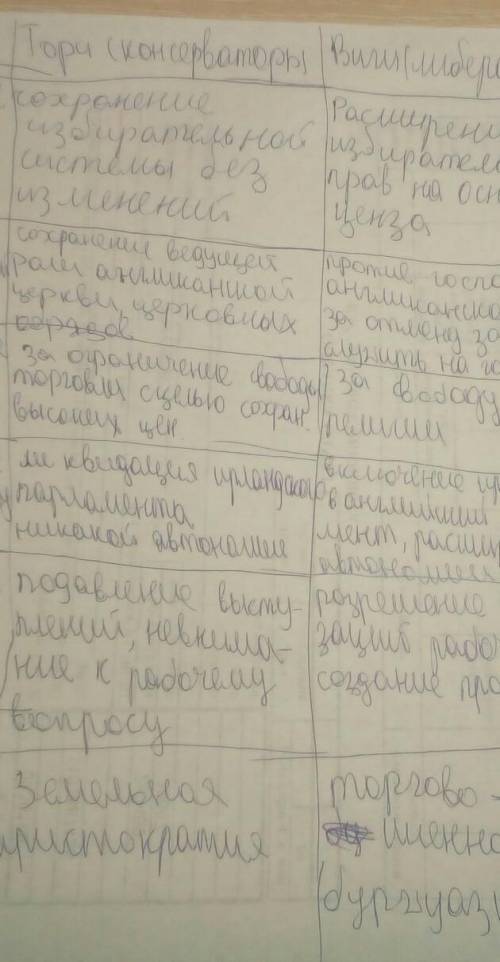 Тори (консерваторы)
Виги (либера
сохранение
избирательной
системы без
изменений
Расширени
избирател
прав на осн
ценза
сохранение ведущей
роли англиканской
церкви, церковных
против госпо
англиканско
за отмену за
служить на го
за ограничение свободы
торговли с целью сохран.
высоких цен
за свободу
религии
ликвидация ирландского
парламента
никакой автономии
включение ир
в английский
мент, расши
автономии
подавление высту-
плений, невнима-
ние к рабочему
вопросу
розрешение
заций рабоч
создание про
Земельная
аристократия
торгово-
именно
буржуази